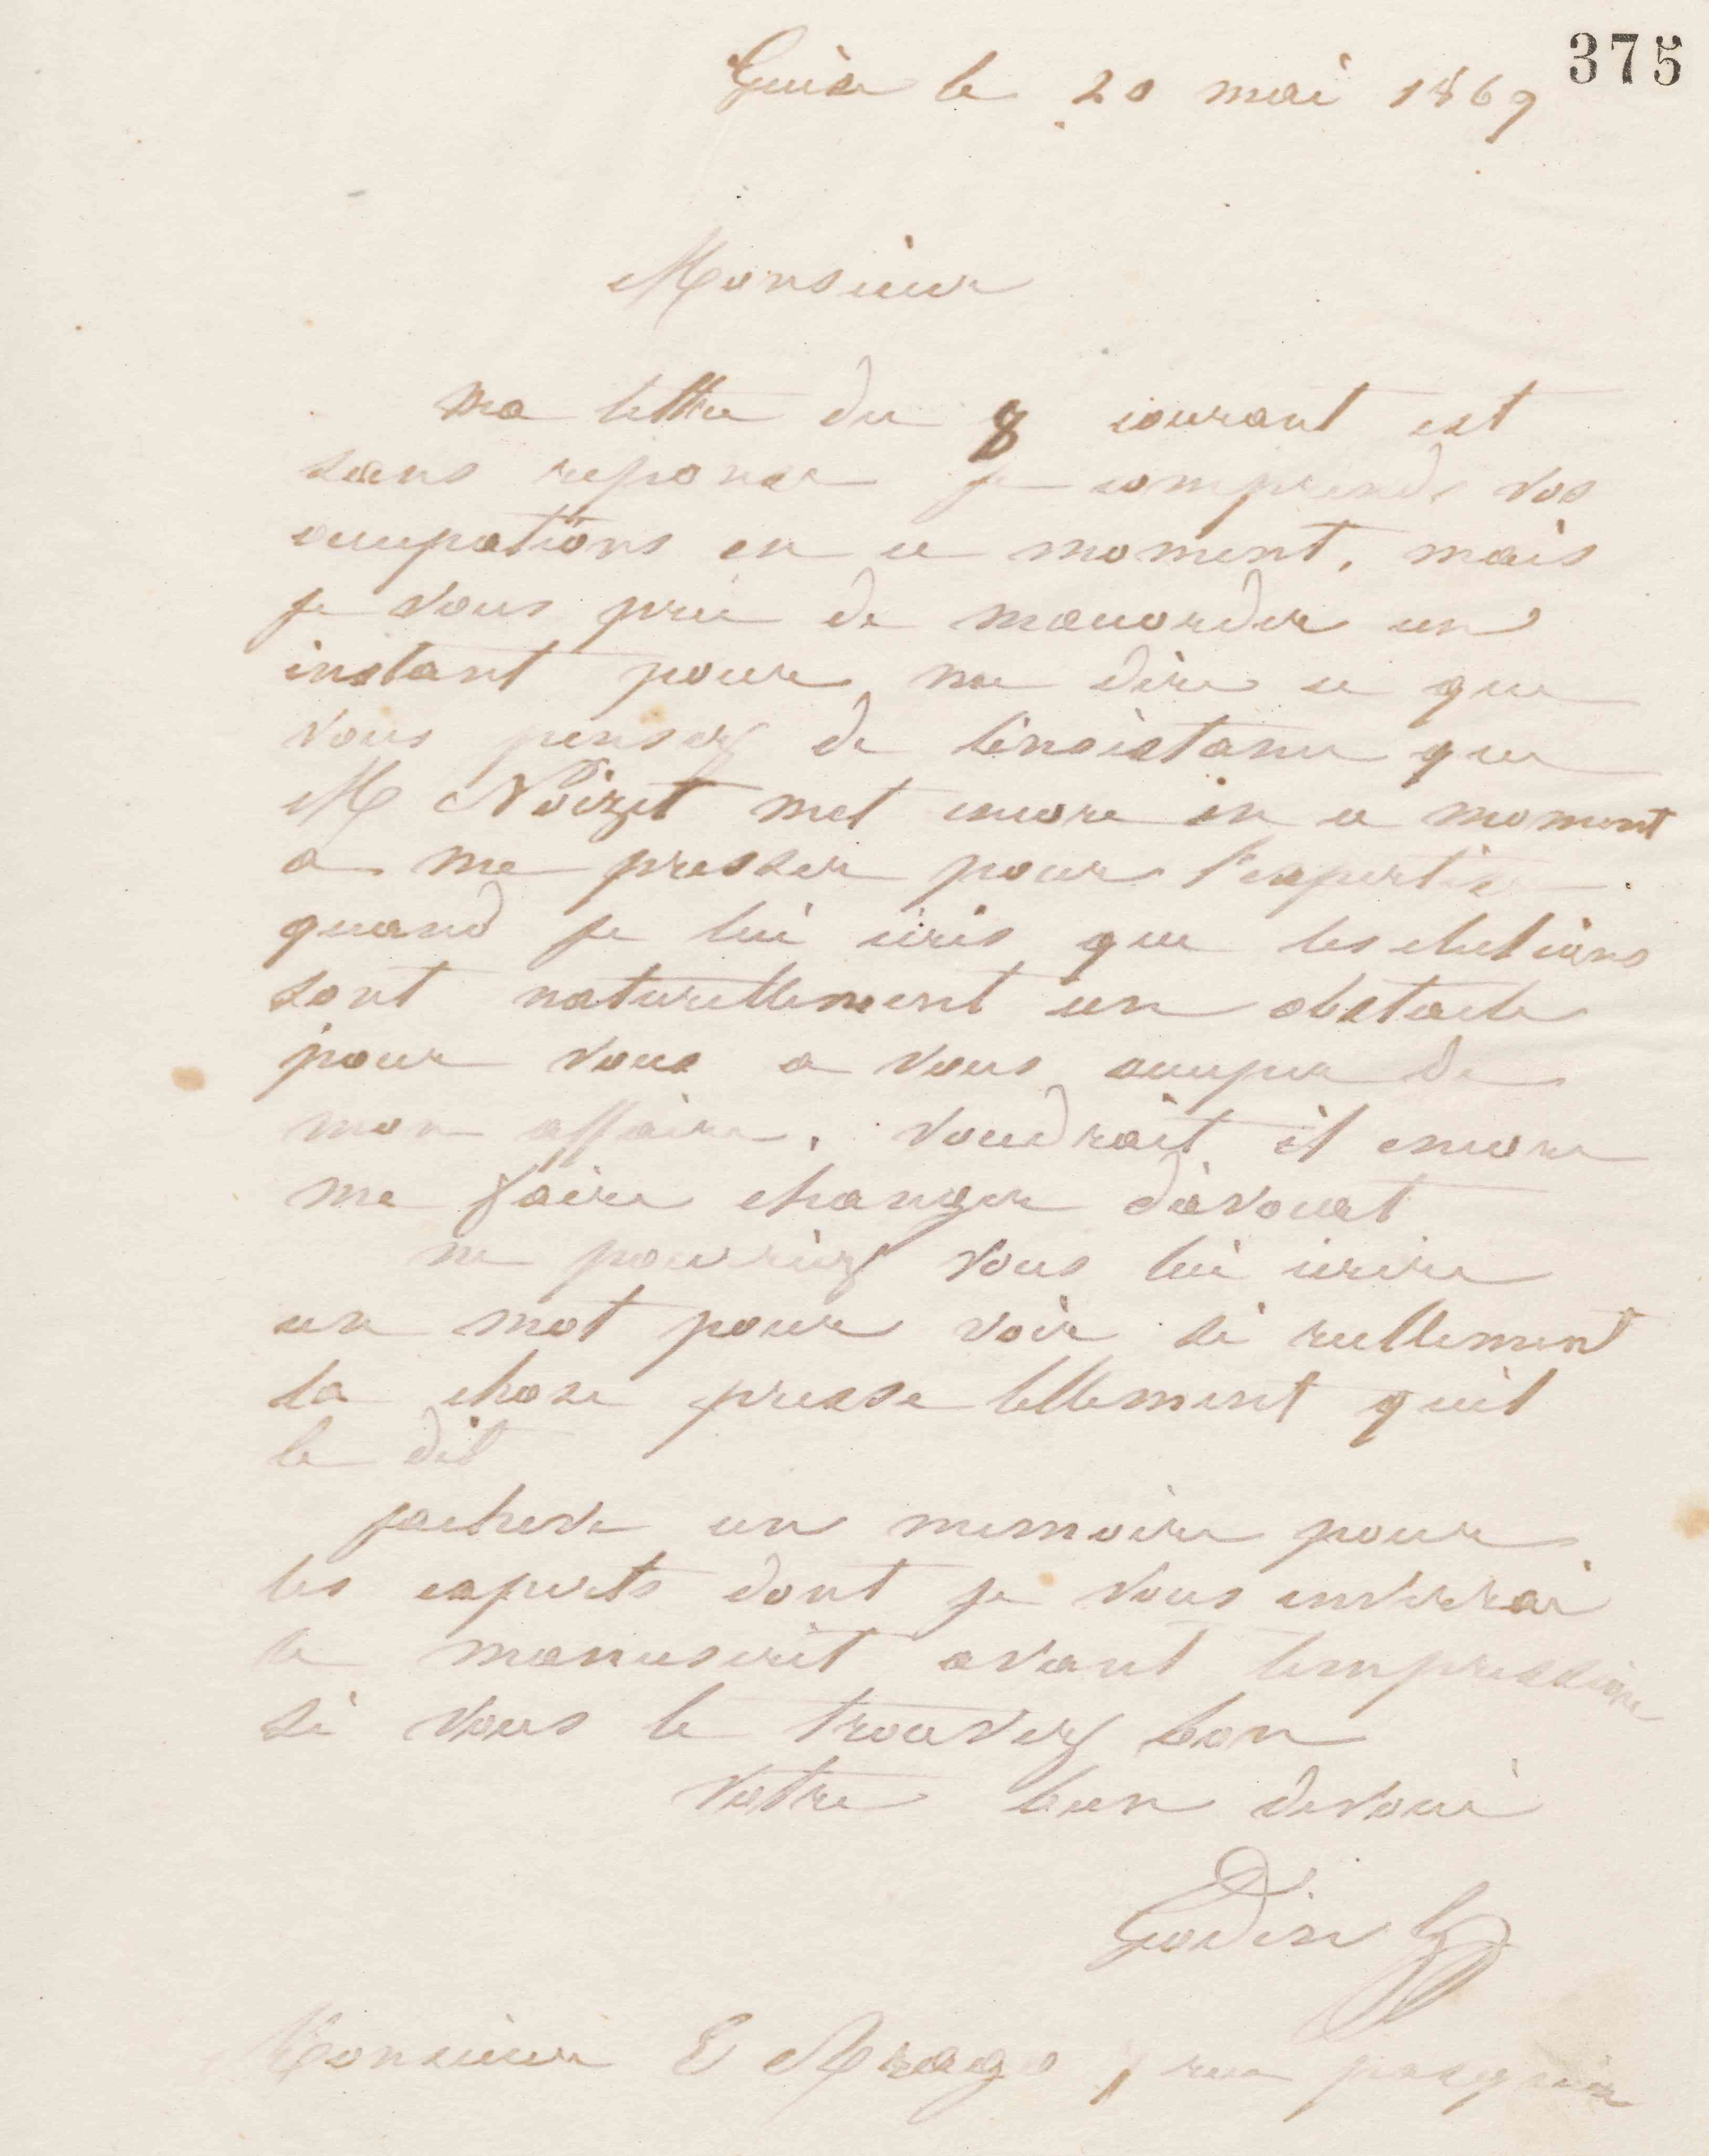 375
Guise le 20 mai 1869
Monsieur
Ma lettre du 8 courant est
sans reponse je comprends vos
occupations en ce moment, mais
je vous prie de maccorder un
instant pour me dire ce que
vous pensez de linsistance que
M Noizet met encore en ce moment
a me presser pour l'expertise.
quand je lui ecris que les elections
sont naturellement un obstacle
pour vous a vous occuper de
mon affaire, voudrait il encore
me faire changer davocat
ne pourriez vous lui ecrire
un mot pour voir si reellement
la chose presse tellement quil
le dit
jacheve un memoire pour
les experts dont je vous enverrai
le manuscrit avant limpression
si vous le trouvez bon
votre bien devoué
Godin
Monsieur E Arago, rue pasquier